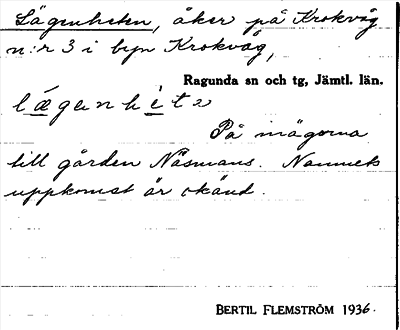 Lägenheten, åker på Krokvåg
n:r 3 i byn Krokvåg,
Ragunda sn och tg, Jämtl. län.
På mågorna
till gården Näsmans. Namnets
uppkomst är okänd.
BERTIL FLEMSTRÖM 1936.